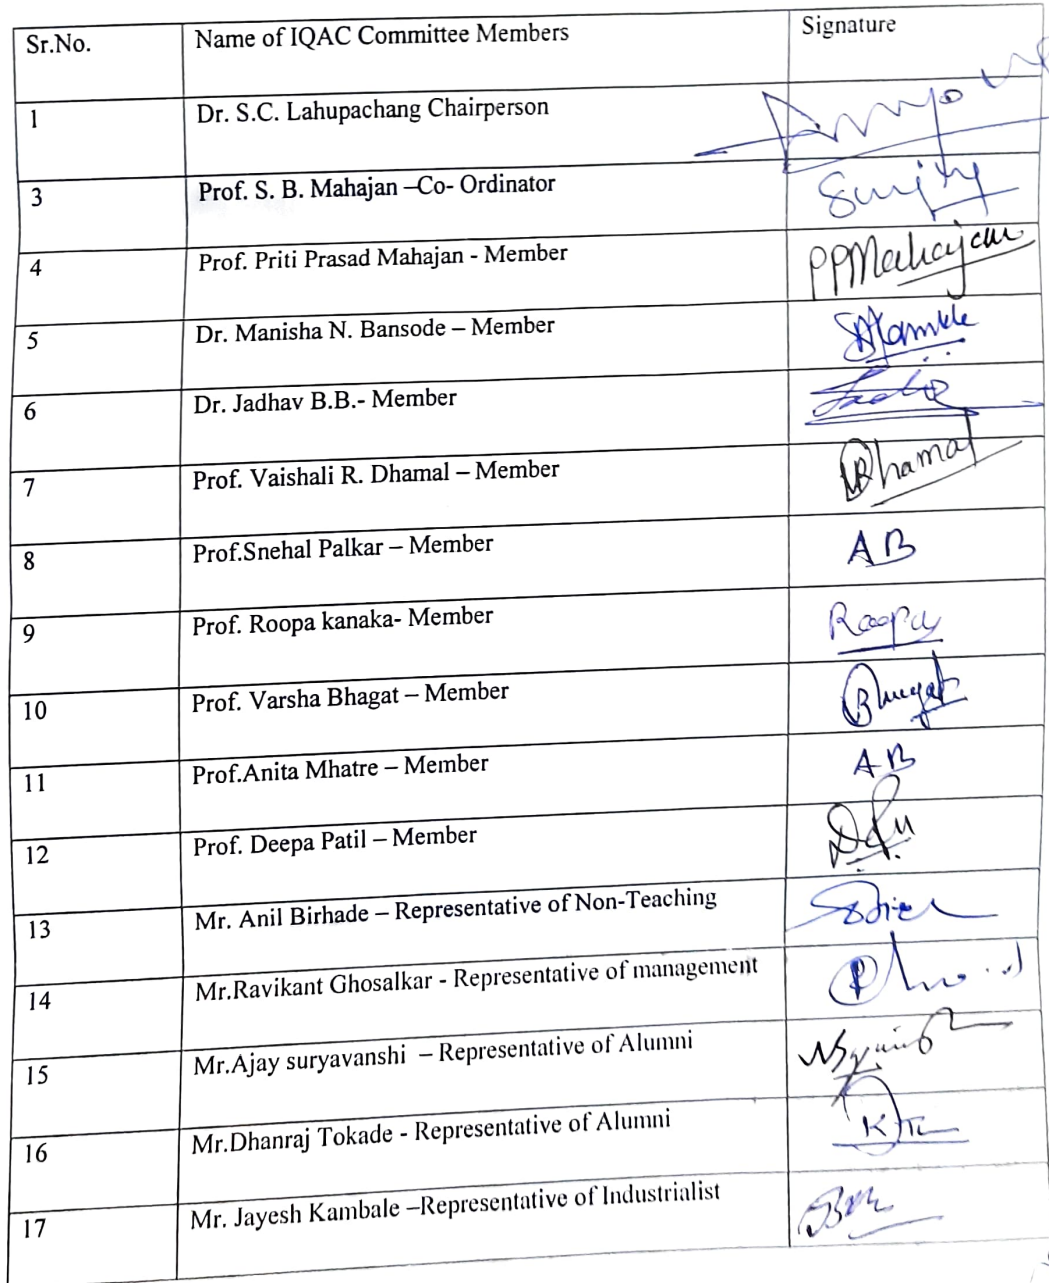 Sr.No. Name of IQAC Committee Members Signature
1 Dr. S.C. Lahupachang Chairperson
3 Prof. S. B. Mahajan –Co- Ordinator
4 Prof. Priti Prasad Mahajan - Member PPMahajan
5 Dr. Manisha N. Bansode – Member
6 Dr. Jadhav B.B.- Member
7 Prof. Vaishali R. Dhamal – Member Dhamal
8 Prof.Snehal Palkar – Member AB
9 Prof. Roopa kanaka- Member Roopa
10 Prof. Varsha Bhagat – Member Bhagat
11 Prof.Anita Mhatre – Member AB
12 Prof. Deepa Patil – Member
13 Mr. Anil Birhade – Representative of Non-Teaching
14 Mr.Ravikant Ghosalkar - Representative of management
15 Mr.Ajay suryavanshi – Representative of Alumni
16 Mr.Dhanraj Tokade - Representative of Alumni
17 Mr. Jayesh Kambale –Representative of Industrialist